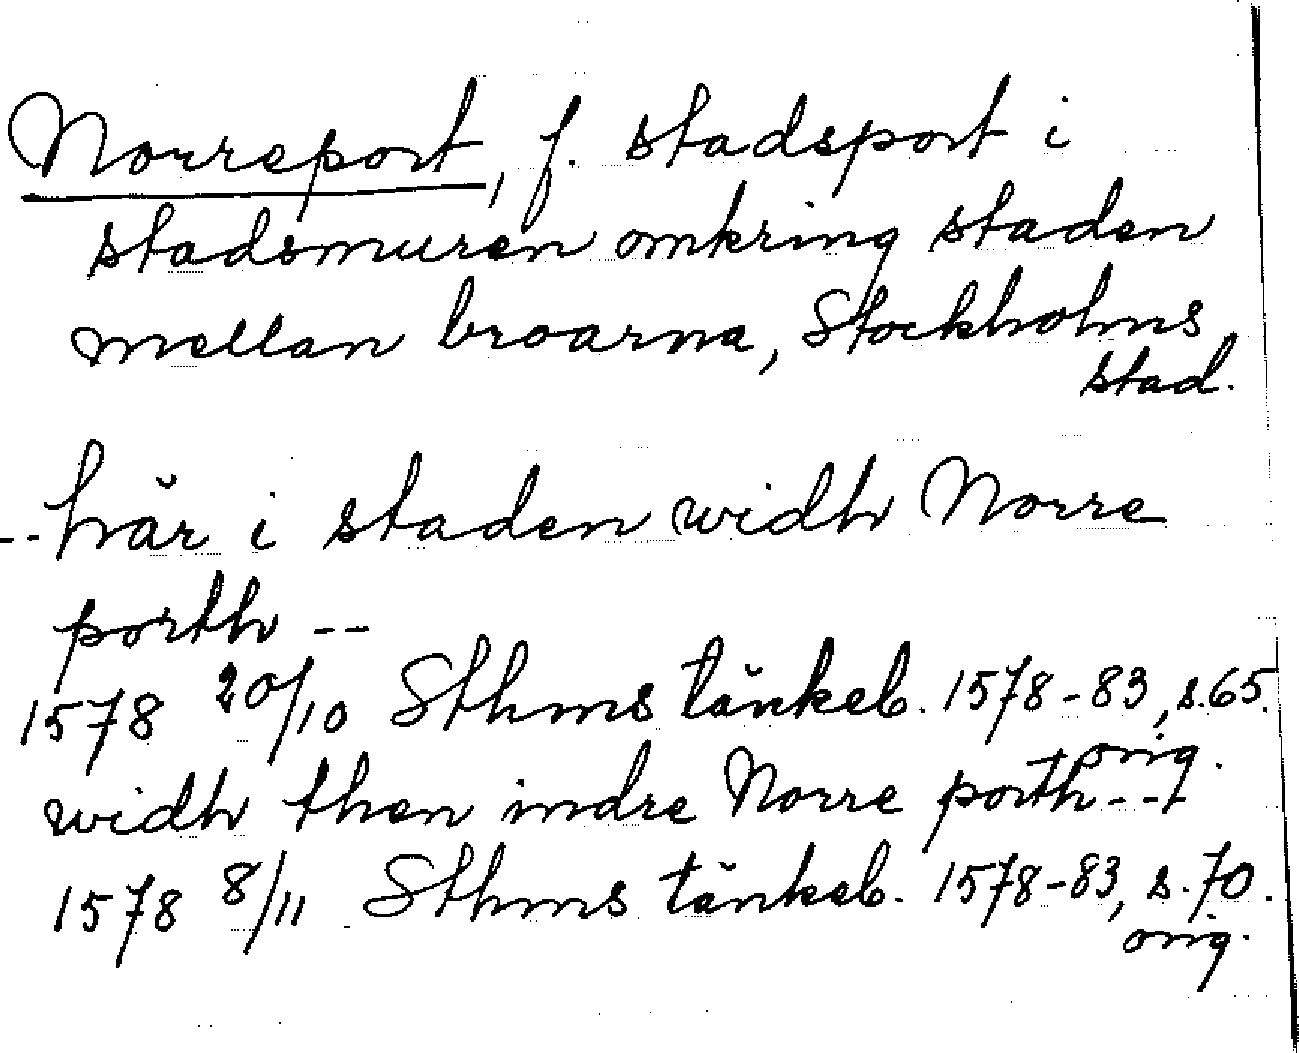 Norreport, f. stadsport i
stadsmuren omkring staden
mellan broarna, Stockholms
stad.
-- här i staden widh Norre
porth --
1578 20/10 Sthms tänkeb. 1578-83, s. 65.
orig.
widh then indre Norre porth --
1578 8/11 Sthms tänkeb. 1578-83, s. 70.
orig.